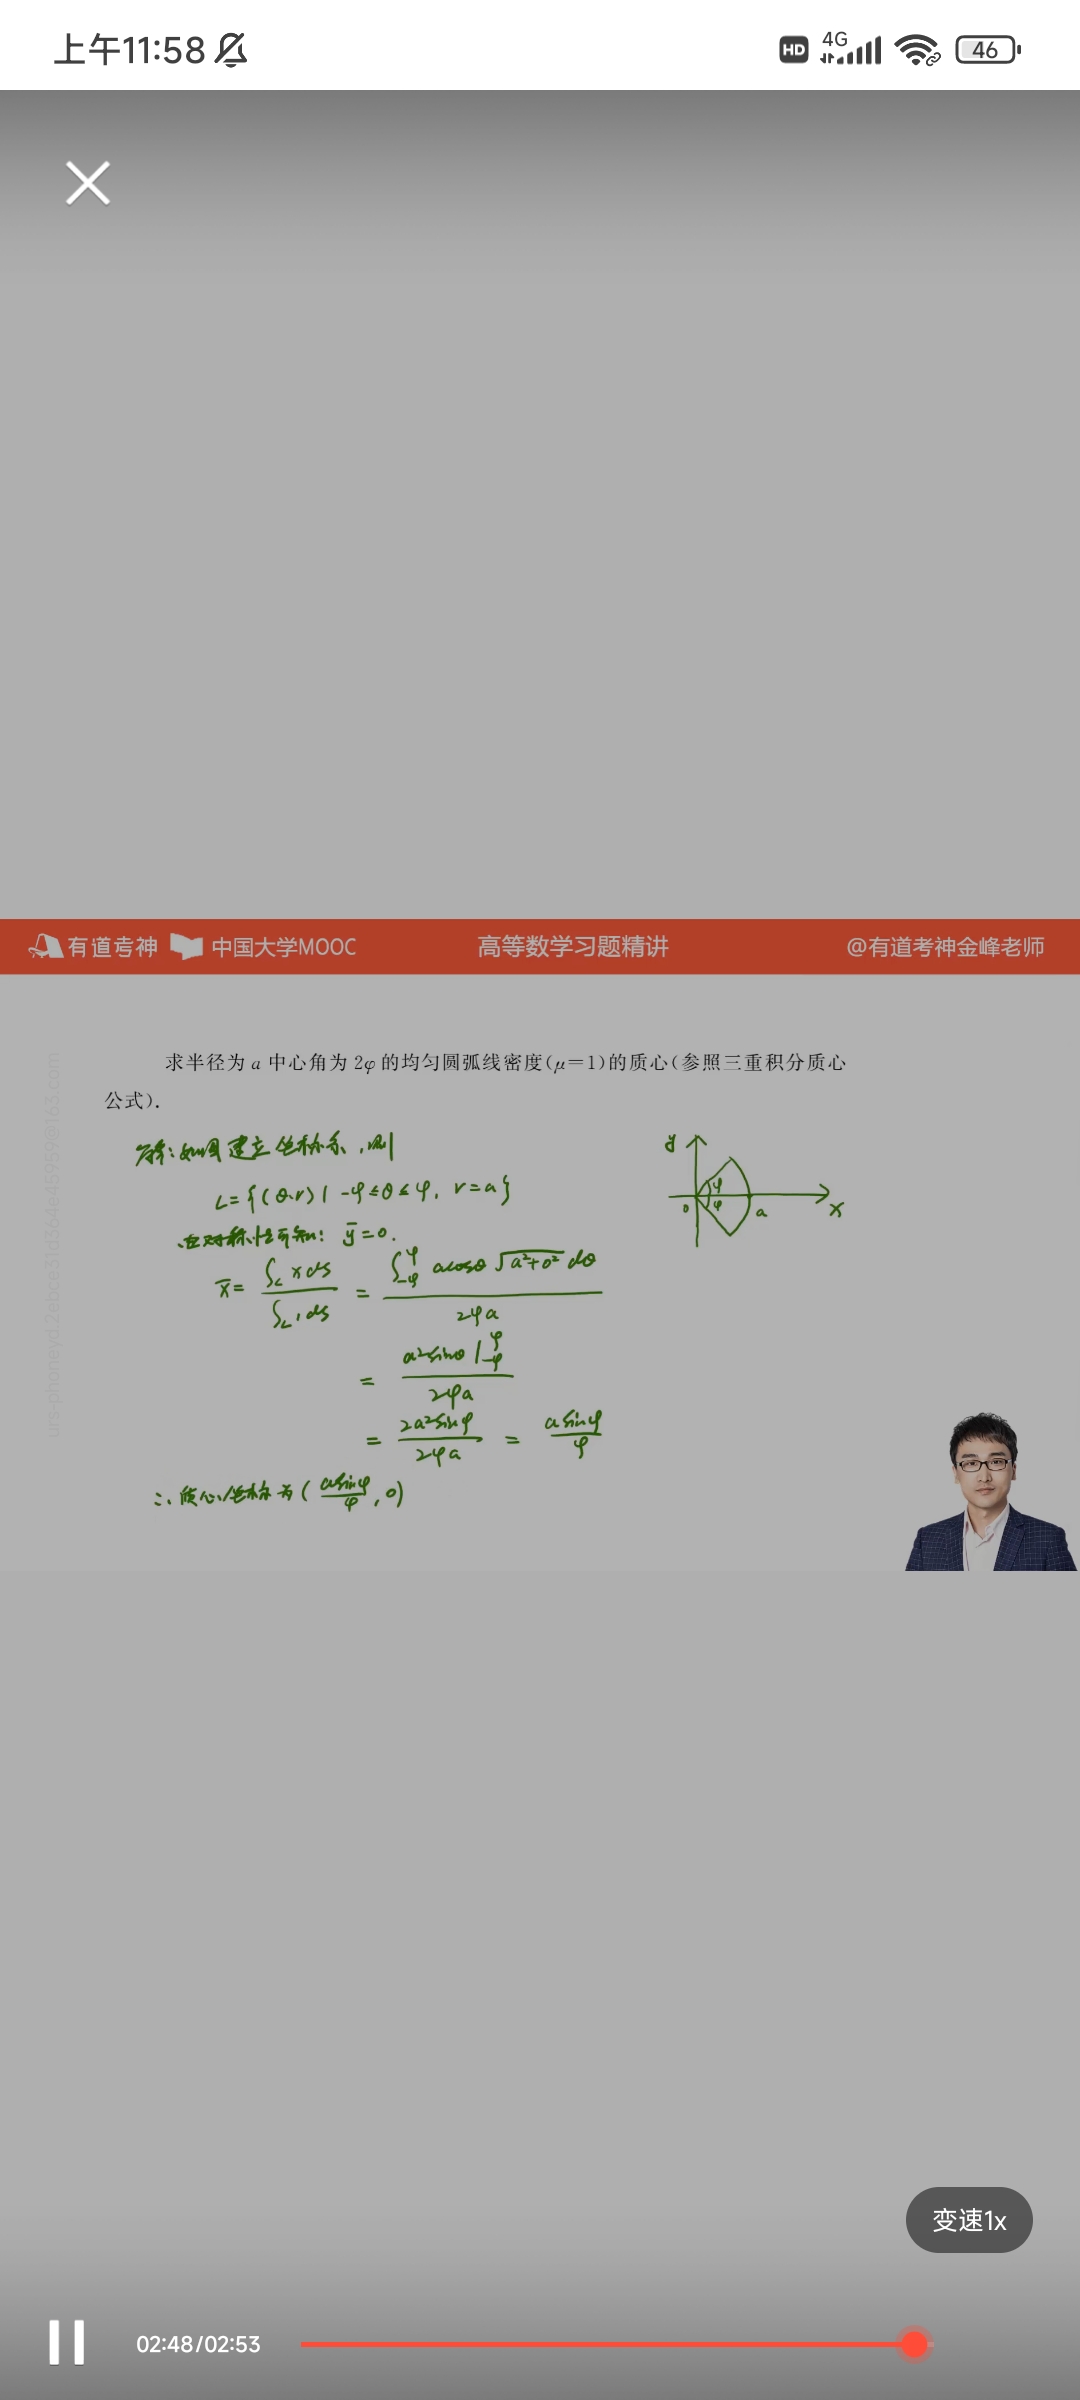 上午11:58 HD 4G 46
有道考神 中国大学MOOC 高等数学习题精讲 @有道考神金峰老师
求半径为 a 中心角为 2φ 的均匀圆弧线密度(μ=1)的质心(参照三重积分质心
公式).
解:如图建立坐标系,则
L={(θ,r)| -φ≤θ≤φ, r=a}
由对称性可知: ȳ=0.
x̄= ∫_L xds / ∫_L 1ds = ∫_{-φ}^{φ} acosθ √(a²+0²) dθ / 2φa
= a²sinθ |_{-φ}^{φ} / 2φa
= 2a²sinφ / 2φa = a sinφ / φ
∴ 质心坐标为 ( asinφ / φ , 0)
y
φ
φ
0 a x
变速1x
02:48/02:53